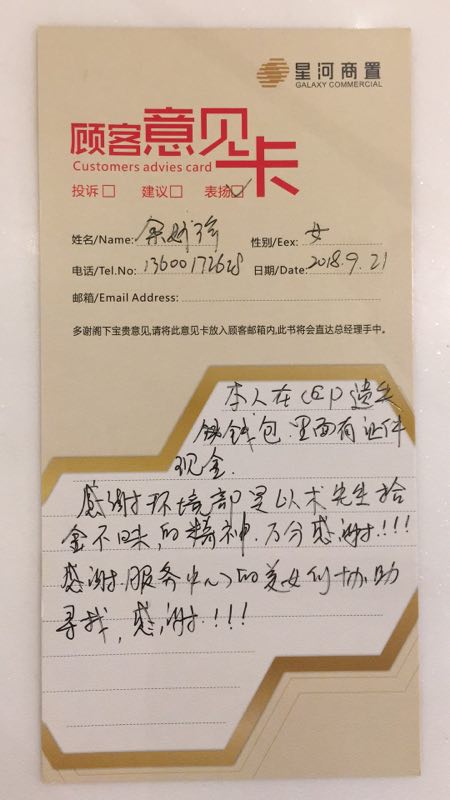 星河商置
GALAXY COMMERCIAL
顾客意见卡
Customers advies card
投诉 建议 表扬
姓名/Name: 性别/Eex: 女
电话/Tel.No: 13600172628 日期/Date: 2018.9.21
邮箱/Email Address:
多谢阁下宝贵意见,请将此意见卡放入顾客邮箱内,此书将会直达总经理手中。
本人在 遗失
钱包.里面有证件
现金.
感谢环境部 先生拾
金不昧的精神.万分感谢!!!
感谢服务中心的美女们协助
寻找,感谢!!!